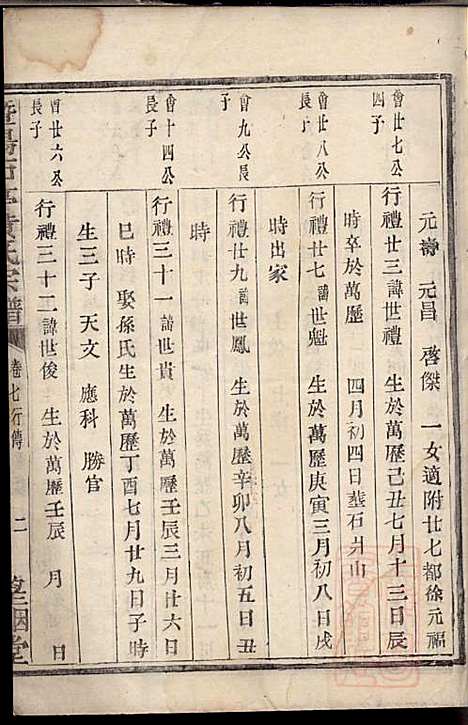 元壽 元昌 啓傑 一女適附廿七都徐元福
會廿七公四子
行禮廿三諱世禮 生於萬歷己丑七月十三日辰
時卒於萬歷 四月初四日塟石井山
會廿八公長子
行禮廿七諱世魁 生於萬歷庚寅三月初八日戌
時出家
會九公長子
行禮廿九諱世鳳 生於萬歷辛卯八月初五日丑
時
會十四公長子
行禮三十一諱世貴 生於萬歷壬辰三月廿六日
巳時 娶孫氏生於萬歷丁酉七月廿九日子時
生三子 天文 應科 勝官
會廿六公長子
行禮三十二諱世俊 生於萬歷壬辰 月 日
氏宗譜 卷七行傳 二